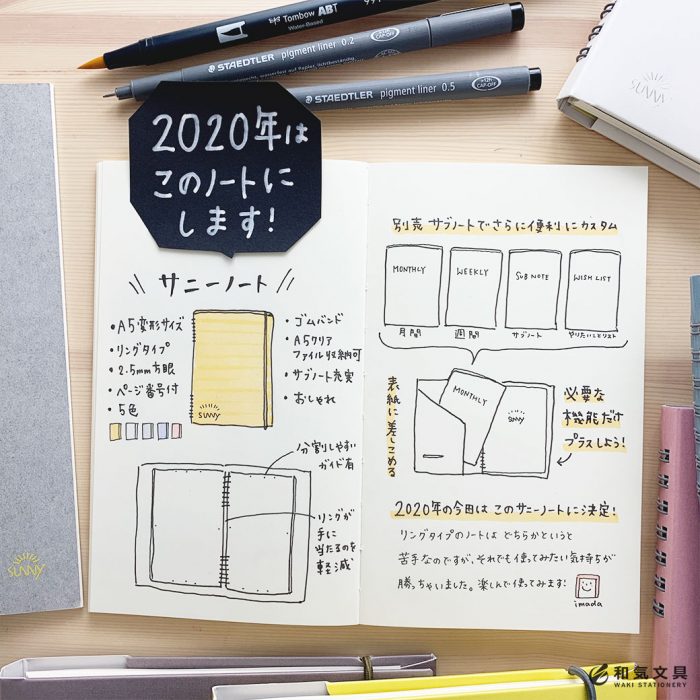 Tombow ABT
Water-Based
STAEDTLER pigment liner 0.2
STAEDTLER pigment liner 0.5
SUNNY
2020年は
このノートに
します!
サニーノート
・A5変形サイズ
・リングタイプ
・2.5mm方眼
・ページ番号付
・5色
SUNNY
・ゴムバンド
・A5クリア
ファイル収納可
・サブノート充実
・おしゃれ
分割しやすい
ガイド有
リングが
手に
当たるのを
軽減
別売 サブノートでさらに便利にカスタム
MONTHLY
WEEKLY
SUB NOTE
WISH LIST
月間
週間
サブノート
やりたいことリスト
表紙に差しこめる
MONTHLY
SUNNY
必要な
機能だけ
プラスしよう!
2020年の今田は このサニーノートに決定!
リングタイプのノートは どちらかというと
苦手なのですが、それでも使ってみたい気持ちが
勝っちゃいました。楽しんで使ってみます!
imada
SUNNY
和気文具
WAKI STATIONERY